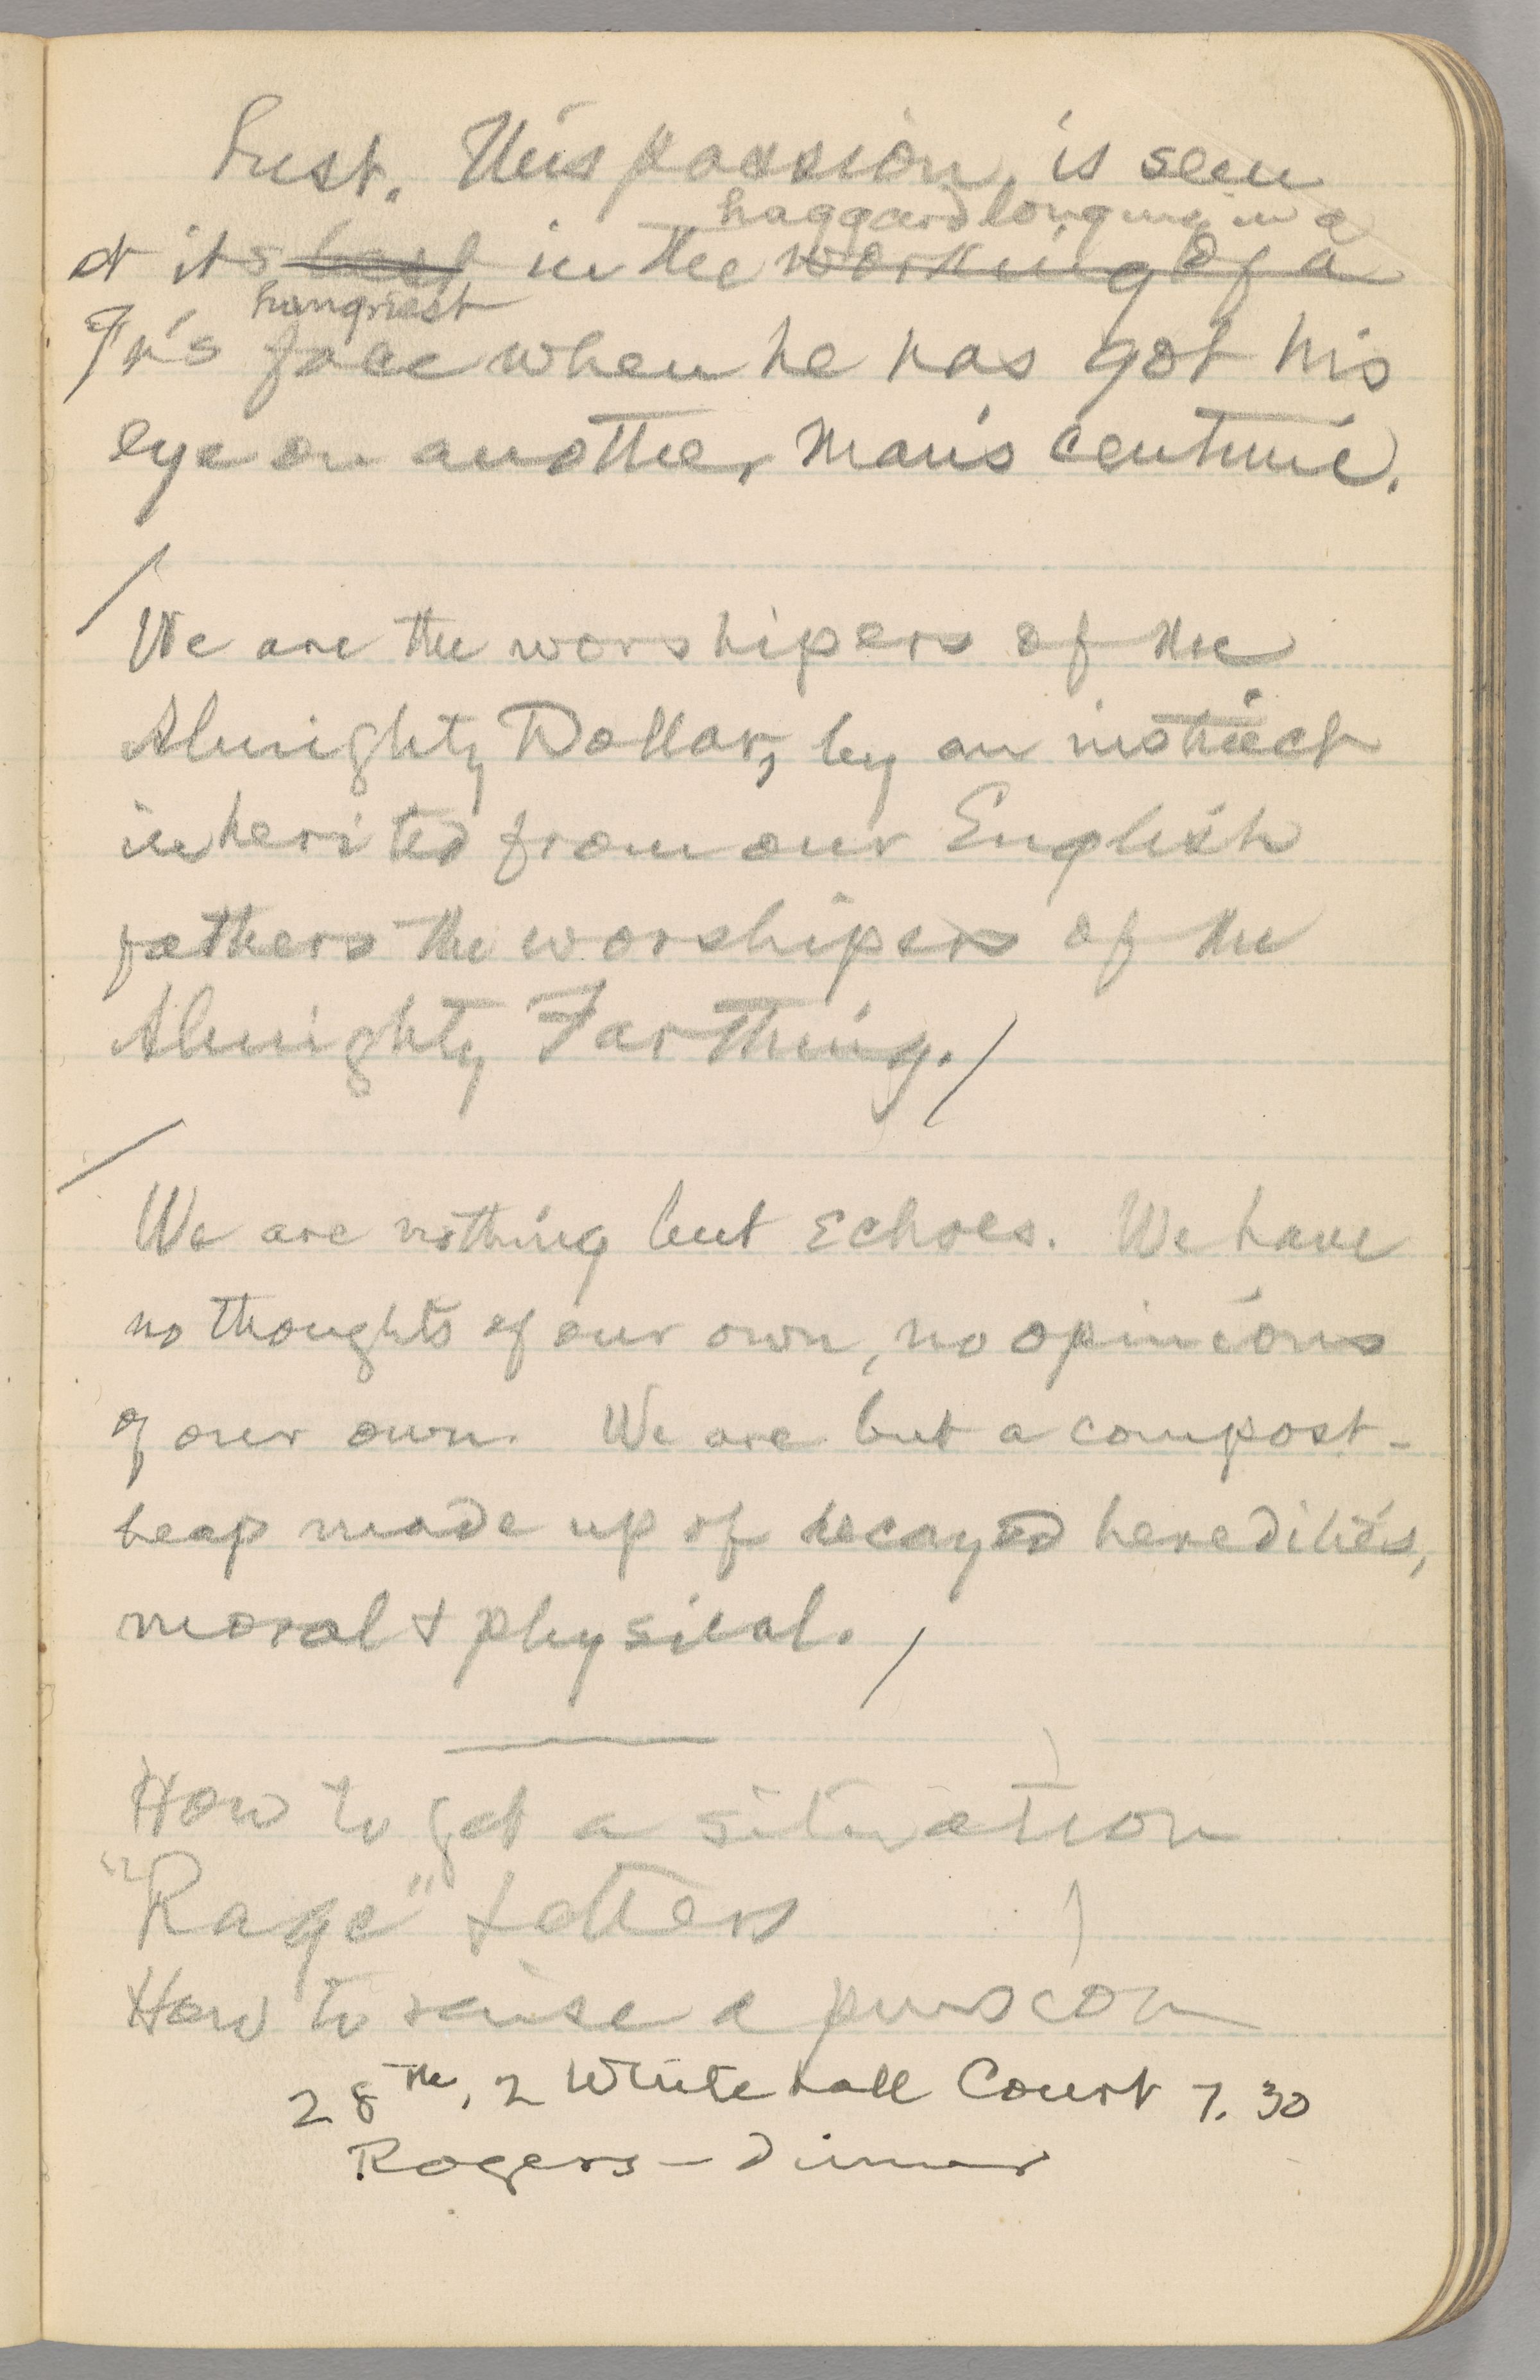 Lust. This passion is seen
haggard longing in a
at its best in the working of a
hungriest
Fr's face when he has got his
eye on another man's centime.
We are the worshipers of the
Almighty Dollar, by an instinct
inherited from our English
fathers the worshipers of the
Almighty Farthing.
We are nothing but echoes. We have
no thoughts of our own, no opinions
of our own. We are but a compost-
heap made up of decayed heredities,
moral & physical.
How to get a situation
"Rage" letters
How to raise a
28th, 2 Whitehall Court 7.30
Rogers — dinner